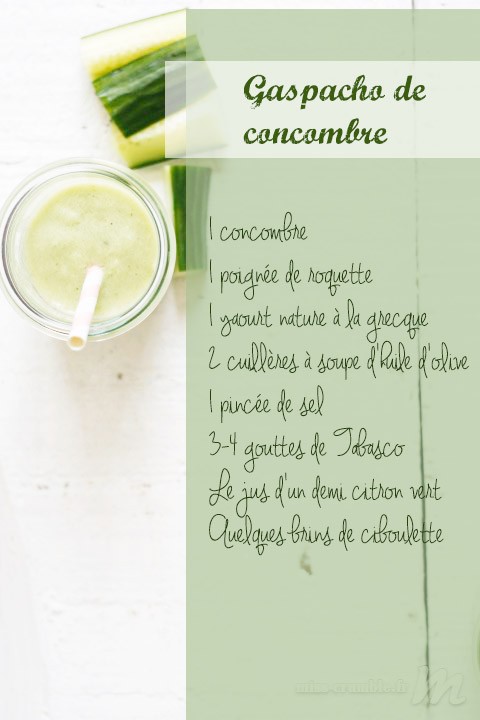 Gaspacho de
concombre
1 concombre
1 poignée de roquette
1 yaourt nature à la grecque
2 cuillères à soupe d'huile d'olive
1 pincée de sel
3-4 gouttes de Tabasco
Le jus d'un demi citron vert
Quelques brins de ciboulette